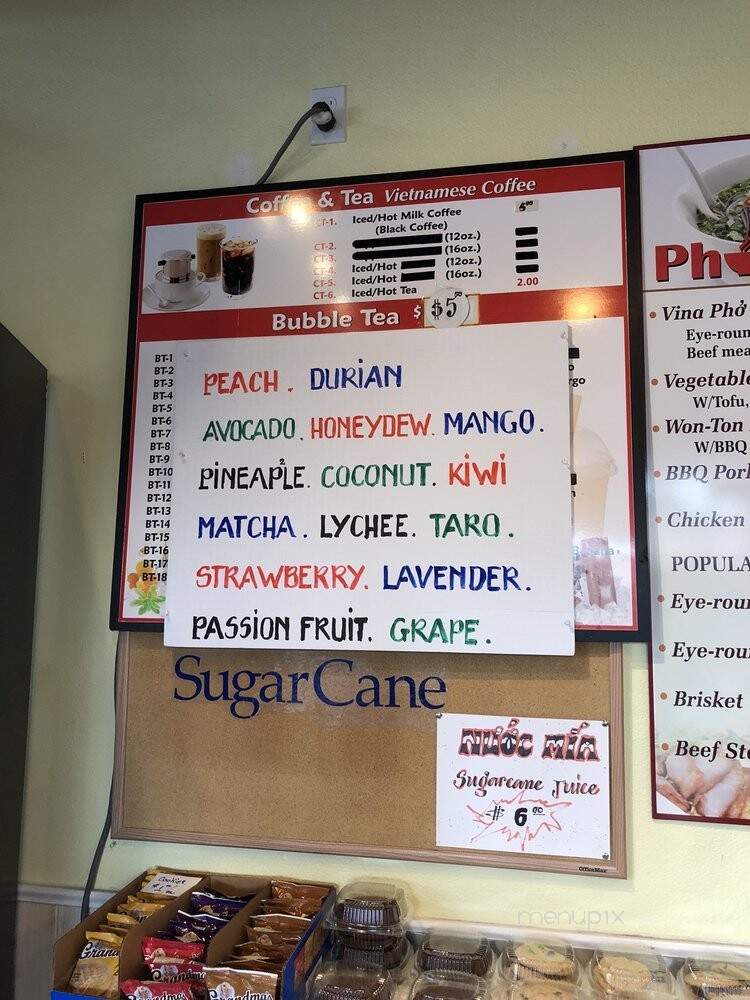 Coffee & Tea Vietnamese Coffee
CT-1. Iced/Hot Milk Coffee
(Black Coffee)
CT-2. (12oz.)
CT-3. (16oz.)
CT-4. Iced/Hot (12oz.)
CT-5. Iced/Hot (16oz.)
CT-6. Iced/Hot Tea 2.00
Bubble Tea $ $5⁰⁰
BT-1
BT-2
BT-3
BT-4
BT-5
BT-6
BT-7
BT-8
BT-9
BT-10
BT-11
BT-12
BT-13
BT-14
BT-15
BT-16
BT-17
BT-18
PEACH. DURIAN
AVOCADO. HONEYDEW. MANGO.
PINEAPLE. COCONUT. KIWI
MATCHA. LYCHEE. TARO.
STRAWBERRY. LAVENDER.
PASSION FRUIT. GRAPE.
SugarCane
NƯỚC MÍA
Sugarcane Juice
$ 6⁰⁰
OfficeMax
Ph
• Vina Phở
Eye-roun
Beef mea
• Vegetable
W/Tofu,
• Won-Ton
W/BBQ
• BBQ Pork
• Chicken
POPULA
• Eye-rou
• Eye-rou
• Brisket
• Beef Ste
Cookies
Grandma's
Grandma's
menupix